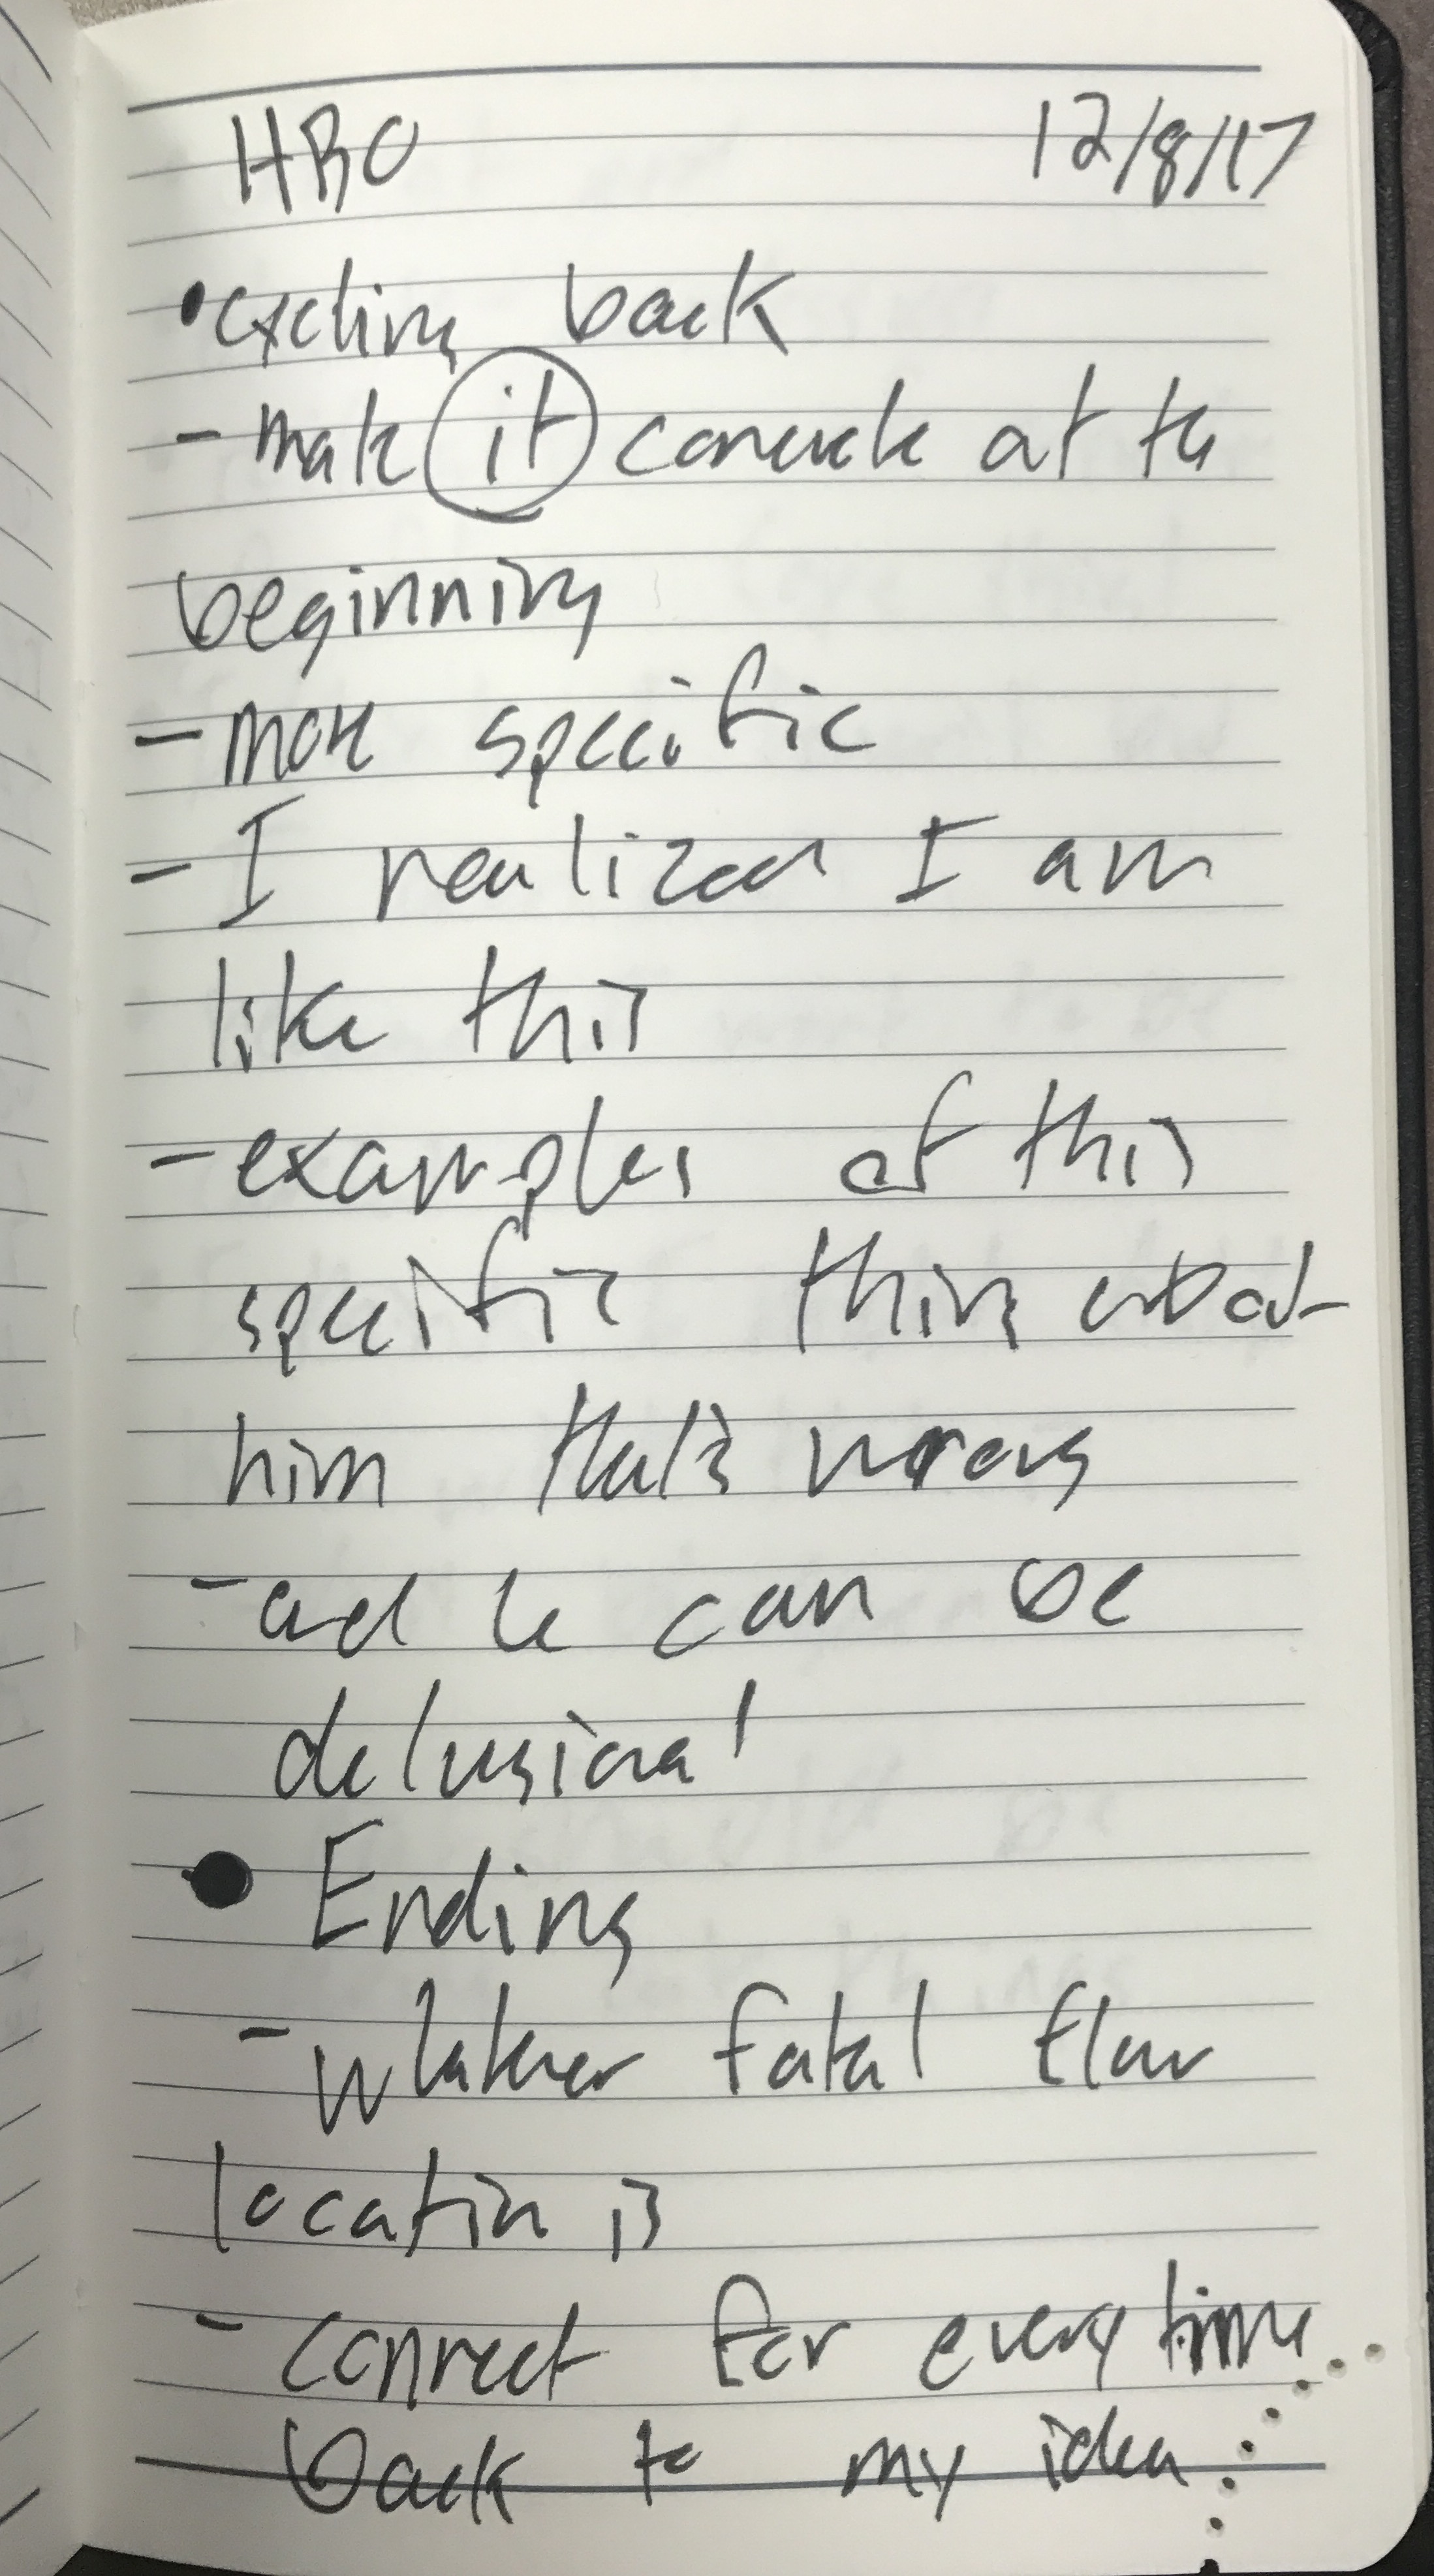 HBO 12/8/17
• cycling back
- make it concrete at the
beginning
- more specific
- I realized I am
like this
- examples of this
specific thing about
him that's wrong
- and he can be
delusional
• Ending
- whatever fatal flaw
location is
- connect for every time
back to my idea